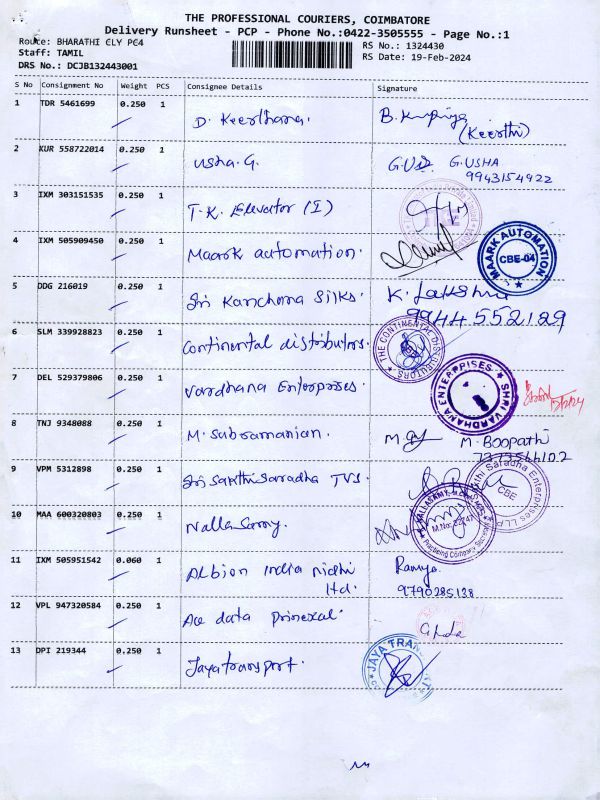 THE PROFESSIONAL COURIERS, COIMBATORE
Delivery Runsheet - PCP - Phone No.:0422-3505555 - Page No.:1
Route: BHARATHI CLY PC4
RS No.: 1324430
Staff: TAMIL
RS Date: 19-Feb-2024
DRS No.: DCJB132443001
S No Consignment No Weight PCS Consignee Details Signature
1 TDR 5461699 0.250 1 D. Keerthana.
(Keerthi)
2 KUR 558722014 0.250 1 Usha.G. G.USHA
9943154922
3 IXM 303151535 0.250 1 T.K. Elevator (I)
4 IXM 505909450 0.250 1 Maark automation. MAARK AUTOMATION CBE-04
5 DDG 216019 0.250 1 Sri Kanchana Silks. K. Lakshmi
9944552129
6 SLM 339928823 0.250 1 Continental distributors. THE CONTINENTAL DISTRIBUTORS
7 DEL 529379806 0.250 1 Vardhana Enterprises. SHRI VARDHANA ENTERPRISES
8 TNJ 9348088 0.250 1 M. Subramanian. M. Boopathi
9 VPM 5312898 0.250 1 Sri Sakthi Saradha TVS. Saradha Enterprises LLP CBE
10 MAA 600320803 0.250 1 Nallasamy. M.No: 22147 Practising Company Secretary
11 IXM 505951542 0.060 1 Albion India nidhi Ramya.
ltd. 9790285138
12 VPL 947320584 0.250 1 Ace data
13 DPI 219344 0.250 1 Jayatransport. JAYA TRANSPORT